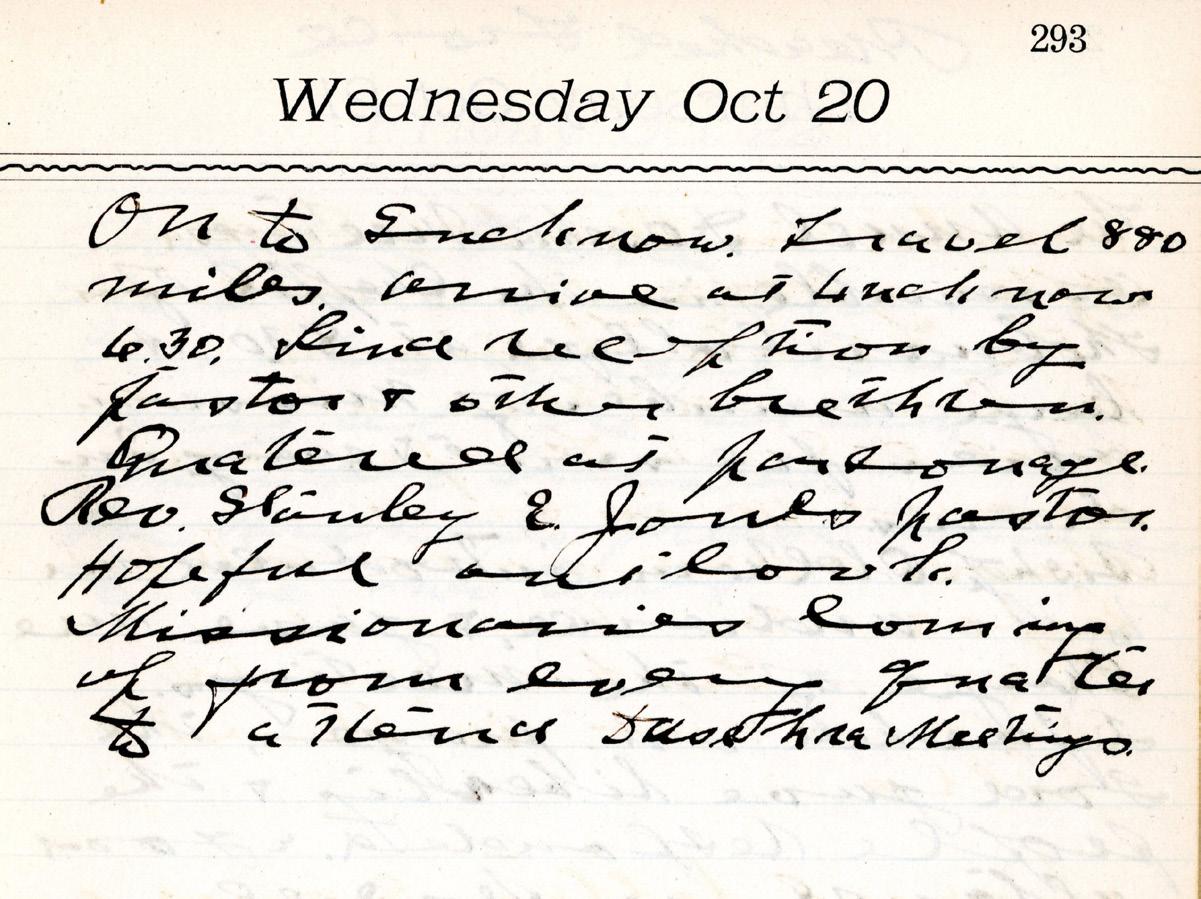 293
Wednesday Oct 20
On to Lucknow. Travel 880
miles. arrive at Lucknow
6.30. Kind reception by
pastor & other brethren.
Quatered at parsonage.
Rev. Stanley E. Jones pastor.
Hopeful outlook.
Missionaries coming
up from every quater
to attend Dassehra Meetings.